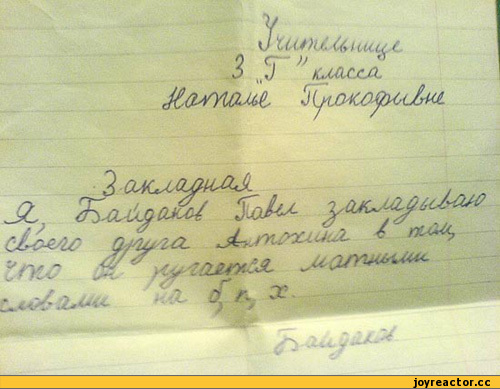 Учительнице
3 "Г" класса
Наталье Прокофивне
Закладная
Я, Байдаков Павел закладываю
своего друга Антохина в том,
что он ругается матными
словами на б, п, х.
Байдаков
joyreactor.cc